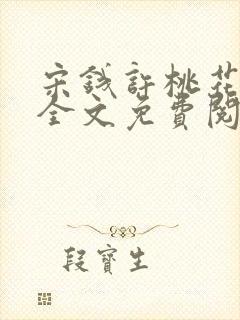 宋錢許桃花
全文免費閱
段寶生